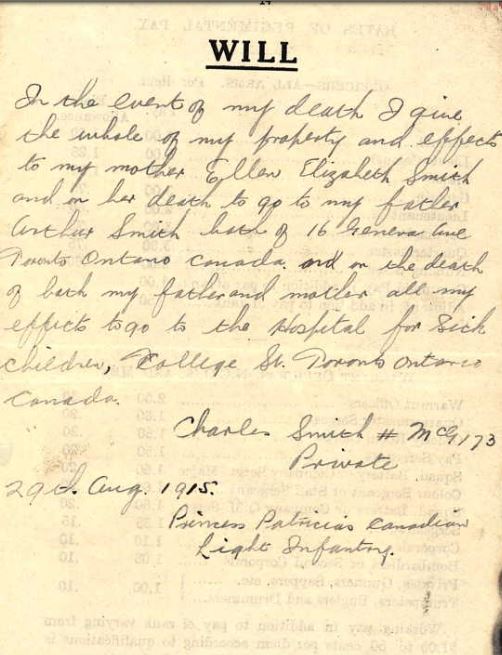 WILL
In the event of my death I give
the whole of my property and effects
to my mother Ellen Elizabeth Smith
and on her death to go to my father
Arthur Smith both of 16 Geneva Ave
Toronto Ontario Canada. and on the death
of both my father and mother all my
effects to go to the Hospital for Sick
Children, College St. Toronto Ontario
Canada.
Charles Smith # McG 173
Private
29th Aug. 1915.
Princess Patricias Canadian
Light Infantry.